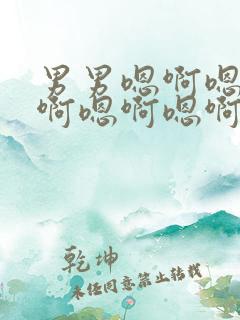 男男嗯啊嗯
啊嗯啊嗯啊
乾坤
未经同意禁止转载